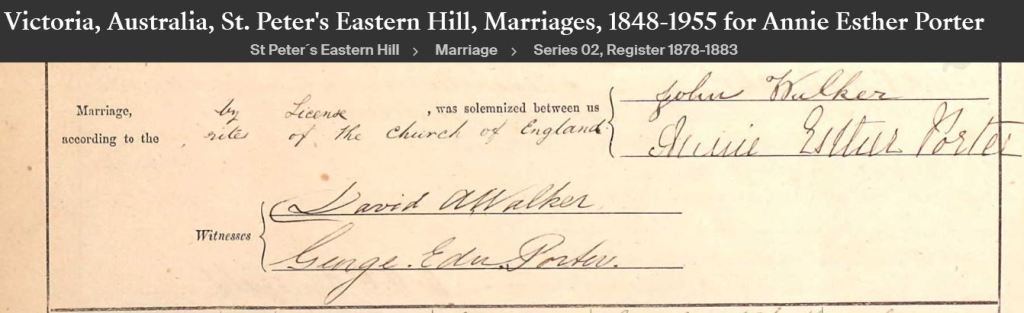 Victoria, Australia, St. Peter's Eastern Hill, Marriages, 1848-1955 for Annie Esther Porter
St Peter´s Eastern Hill > Marriage > Series 02, Register 1878-1883
Marriage, by License, was solemnized between us John Walker
according to the rites of the Church of England Annie Esther Porter
David A Walker
Witnesses
George. Edw. Porter.